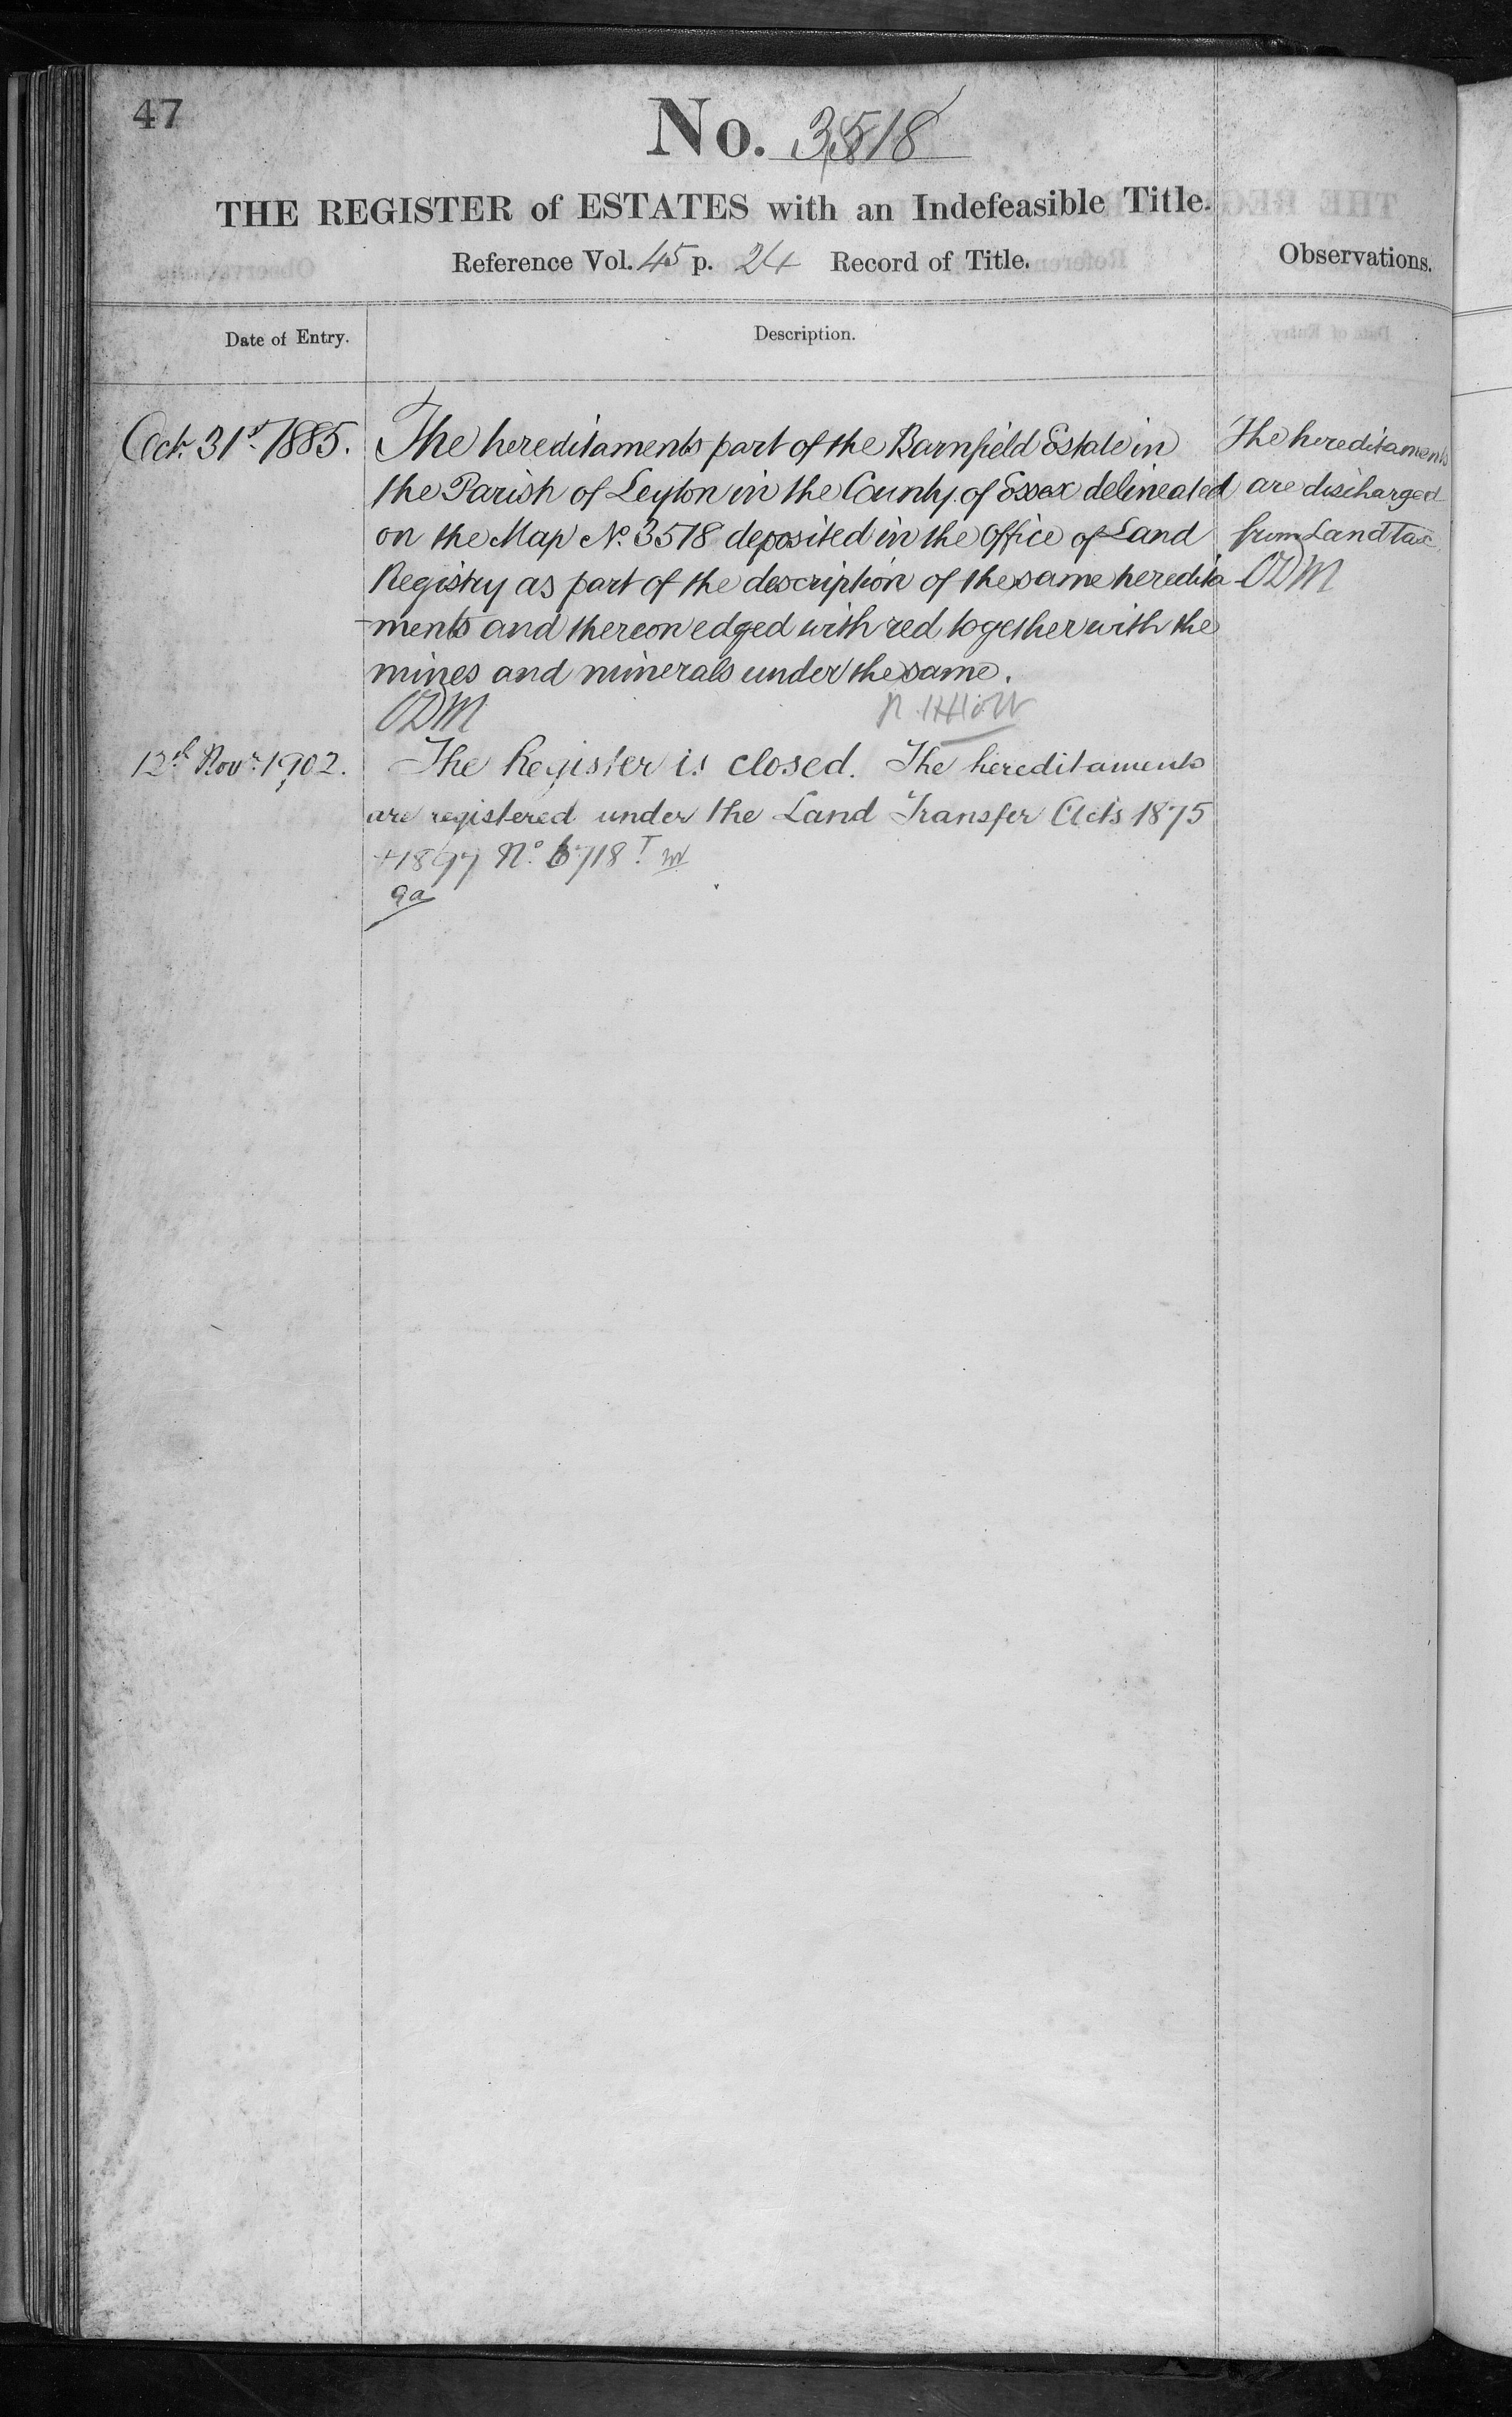 47
No. 3518
THE REGISTER of ESTATES with an Indefeasible Title.
Reference Vol. 45 p. 24 Record of Title.
Observations.
Date of Entry.
Description.
Oct. 31st 1885.
The hereditaments part of the Barnfield Estate in
the Parish of Leyton in the County of Essex delineated
on the Map No. 3518 deposited in the Office of Land
Registry as part of the description of the same heredita
-ments and thereon edged with red together with the
mines and minerals under the same.
ODM
The hereditaments
are discharged
from Land tax
ODM
12th Novr. 1902.
The Register is closed. The hereditaments
are registered under the Land Transfer Acts 1875
+ 1897 No. 6718